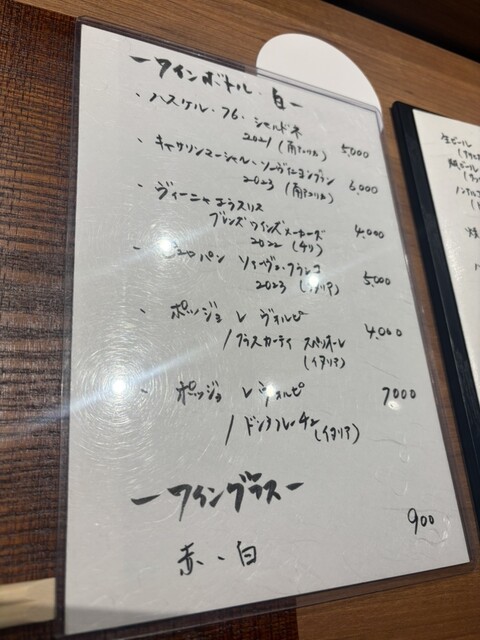 ーワインボトル・白ー
・ハスケル・76・シャルドネ
2021(南アフリカ) 5,000
・キャサリンマーシャル・ソーヴィニヨンブラン
2023(南アフリカ) 6,000
・ヴィーニャエラスリス
ブレンズワインズメーカーズ 4,000
2022(チリ)
パン ソーヴィ・ブランコ 5,000
2023(イタリア)
・ポッジョ レ ヴォルピ 4,000
/フラスカーティ スペリオーレ
(イタリア)
・ポッジョ レ ヴォルピ 7000
/ドンナルーチェ
(イタリア)
ーワイングラスー
900
赤・白
生ビール